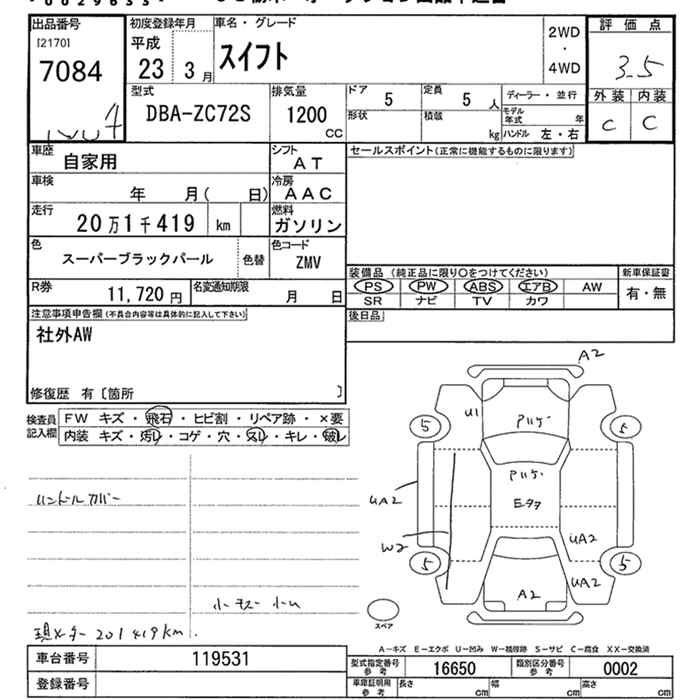 出品番号
[2170]
7084
初度登録年月
平成
23 3月
車名・グレード
スイフト
2WD
・
4WD
評価点
3.5
外装 内装
C C
型式
DBA-ZC72S
排気量
1200
CC
ドア
5
定員
5 人
ディーラー・並行
形状
積載
kg
モデル年式
年
ハンドル 左・右
車歴
自家用
シフト
AT
セールスポイント(正常に機能するものに限ります)
車検
年 月( 日)
冷房
AAC
走行
20万1千419 km
燃料
ガソリン
色
スーパーブラックパール
色替
色コード
ZMV
装備品 (純正品に限り○をつけてください)
新車保証書
PS PW ABS エアB AW
有・無
SR ナビ TV カワ
R券
11,720 円
名変通知期限
月 日
後日品
注意事項申告欄(不具合内容等は具体的に記入して下さい)
社外AW
修復歴 有〔箇所 〕
検査員
記入欄
FW キズ・飛石・ヒビ割・リペア跡・×要
内装 キズ・汚レ・コゲ・穴・スレ・キレ・破レ
ハンドルカバー
現メーター 201419km.
A2
U1
Pハゲ
5
5
Pハゲ
Eタタ
UA2
W2
UA2
5
5
UA2
A2
スペア
A-キズ E-エクボ U-凹み W-補修跡 S-サビ C-腐食 XX-交換済
車台番号
119531
型式指定番号
参考
16650
類別区分番号
参考
0002
登録番号
車庫証明用
参考
長さ cm
幅 cm
高さ cm